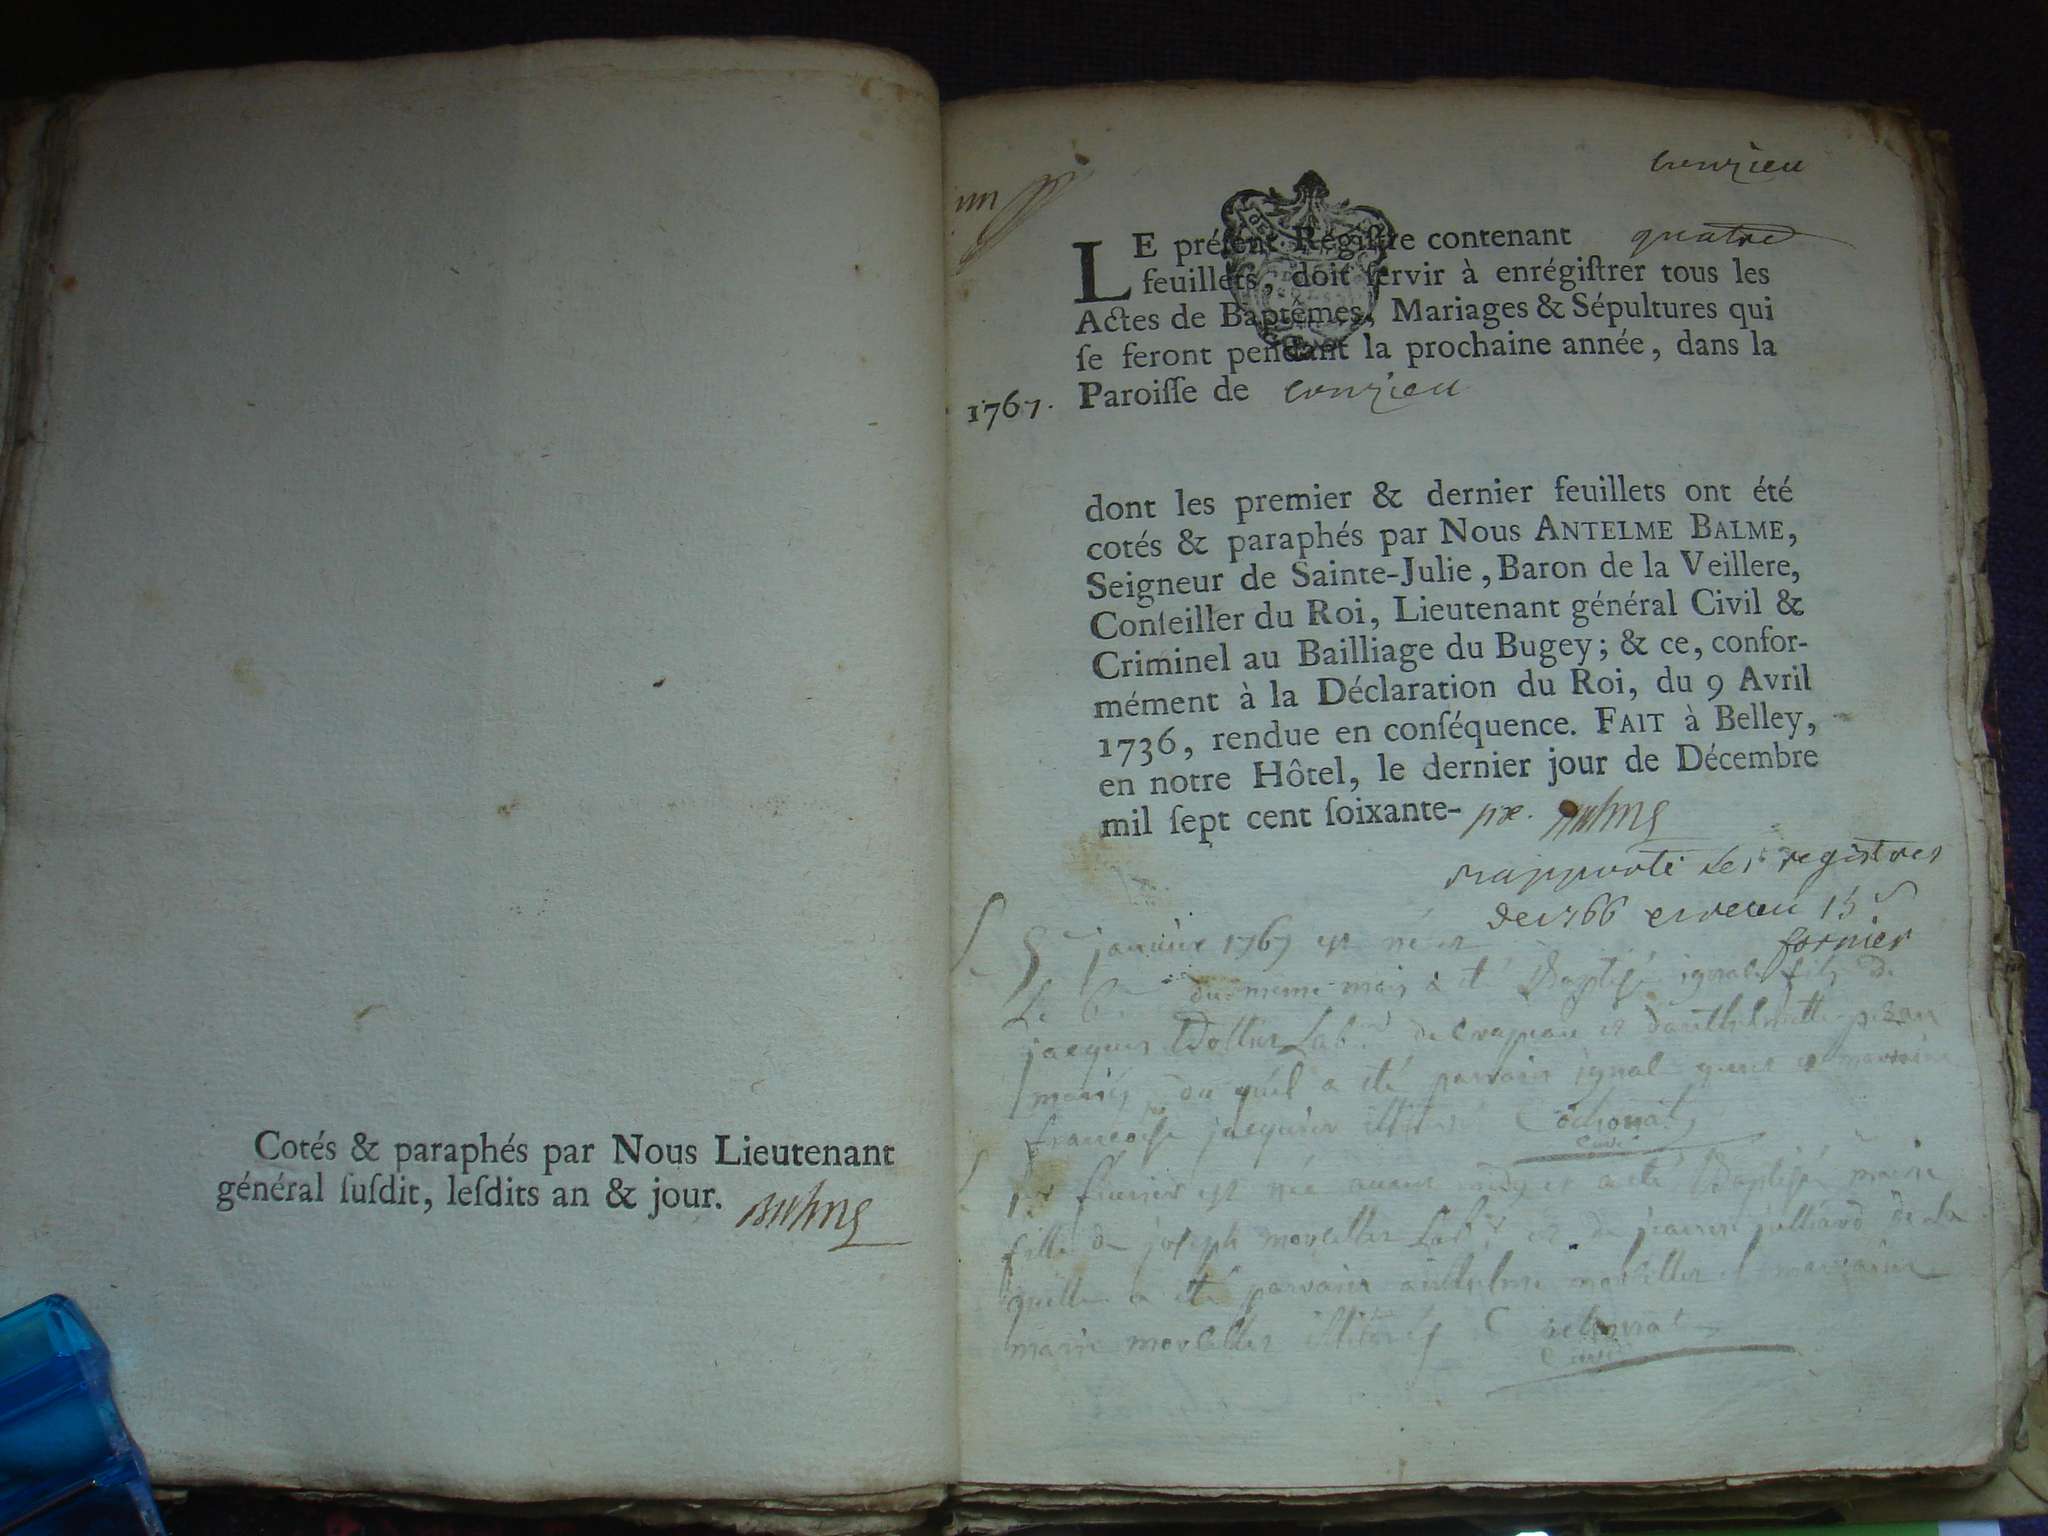 Cotés & paraphés par Nous Lieutenant
général ſuſdit, leſdits an & jour.
conzieu
LE préſent Régiſtre contenant quatre
feuillets, doit ſervir à enrégiſtrer tous les
Actes de Baptêmes, Mariages & Sépultures qui
ſe feront pendant la prochaine année, dans la
1767. Paroiſſe de conzieu
dont les premier & dernier feuillets ont été
cotés & paraphés par Nous ANTELME BALME,
Seigneur de Sainte-Julie, Baron de la Veillere,
Conſeiller du Roi, Lieutenant général Civil &
Criminel au Bailliage du Bugey; & ce, confor-
mément à la Déclaration du Roi, du 9 Avril
1736, rendue en conſéquence. FAIT à Belley,
en notre Hôtel, le dernier jour de Décembre
mil ſept cent ſoixante-
rapporté les registres
de 1766 et recu 15 s
fornier
janvier 1767 est né et
Le 6 du même mois a été Baptisé fils de
jacques Lab.r de et
mariés du quel a été parrain et marraine
francoise
fevrier est née avant midy et a été Baptisée marie
fille de joseph Lab.r et de jeanne julliard de la
quelle a été parrain anthelme et marraine
marie